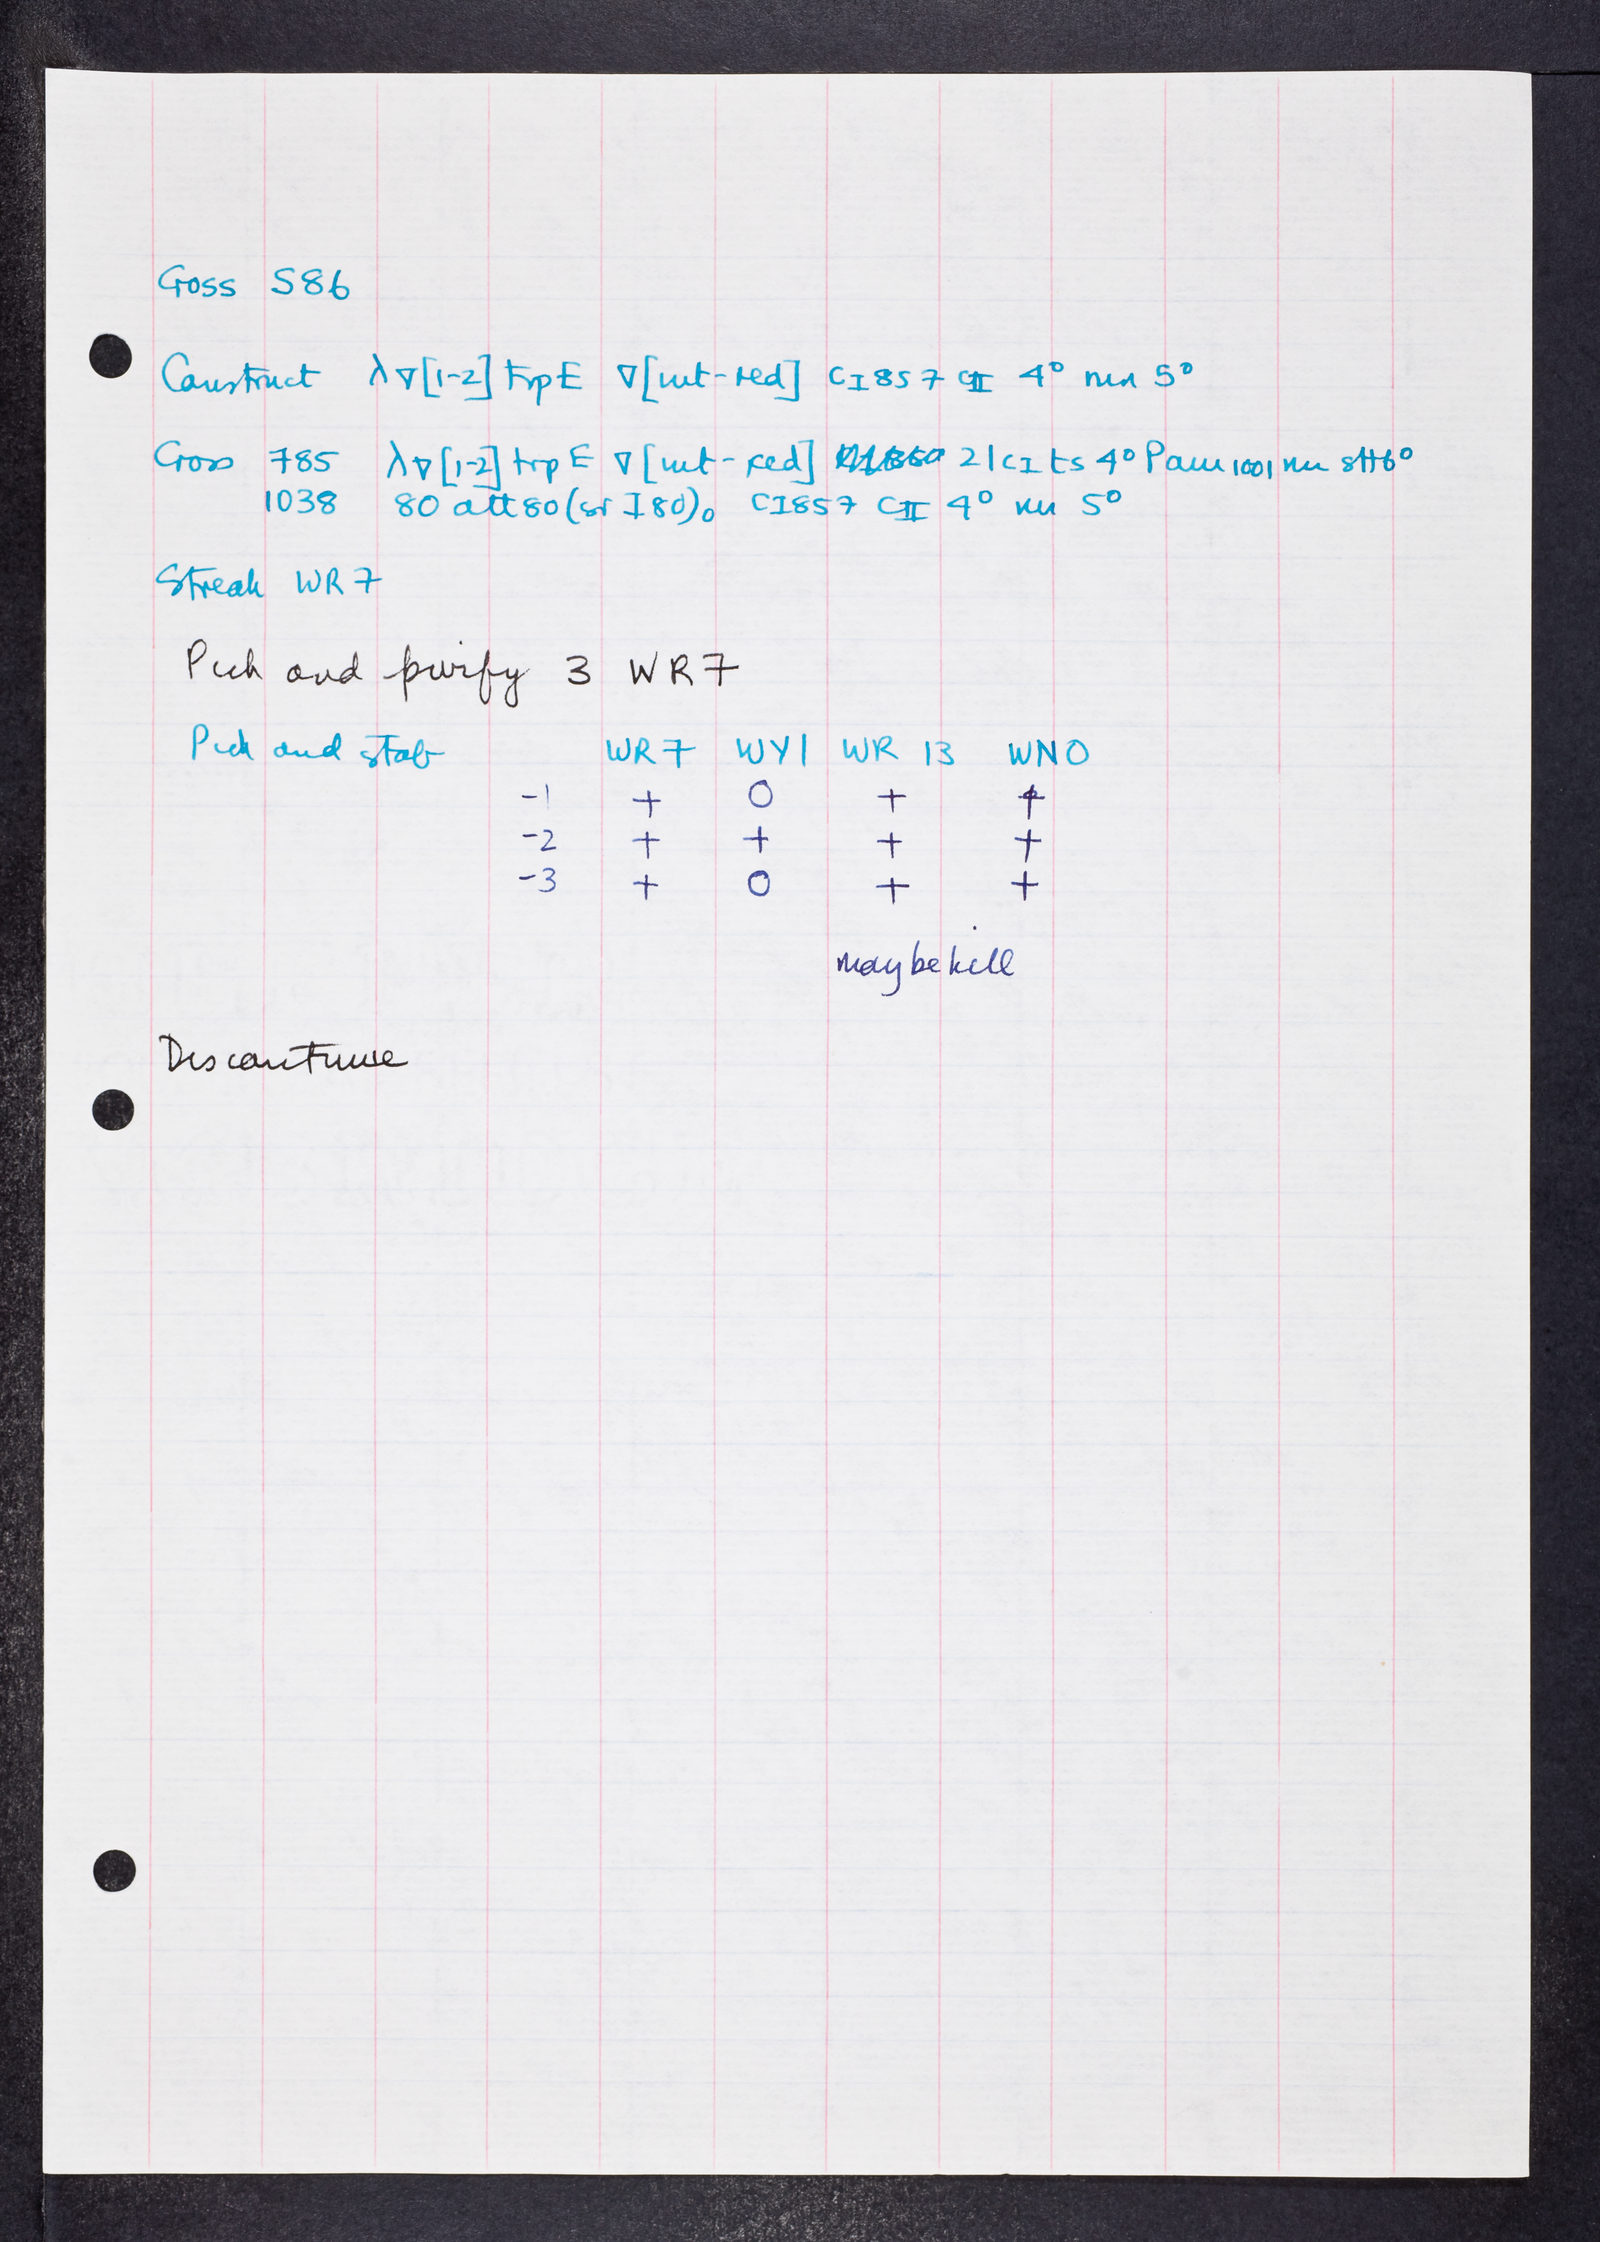 Cross S86
Construct λ∇[1-2] trpE ∇[int-red] CI857 CII 4° nin 5°
Cross 785 λ∇[1-2] trpE ∇[int-red] 21 CI ts 4° Pam 1001 nin sH6°
1038 80 att80 (sr I80)° CI857 CII 4° nin 5°
Streak WR7
Pick and purify 3 WR7
Pick and stab WR7 WY1 WR 13 WNO
-1 + O + +
-2 + + + +
-3 + O + +
maybe kill
Discontinue